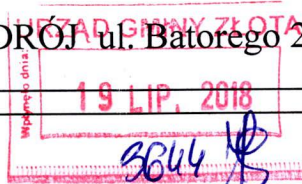 DRÓJ ul. Batorego 2
URZĄD GMINY ZŁOTA
Wpłynęło dnia
19 LIP. 2018
3644